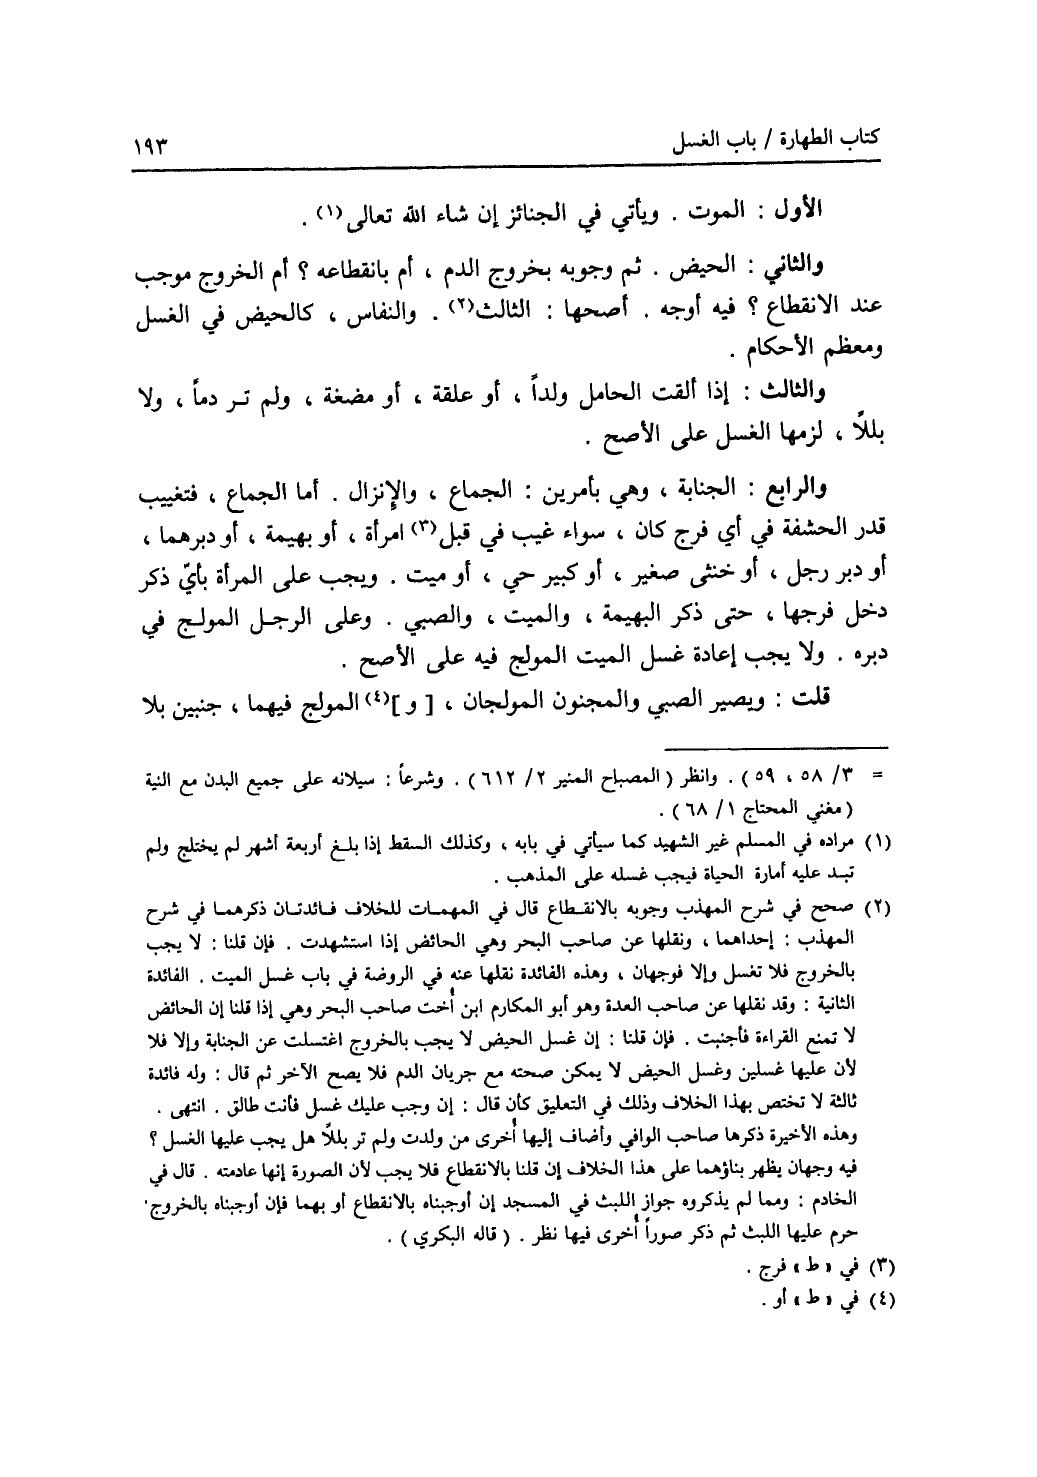 كتاب الطهارة / باب الغسل ١٩٣
الأول : الموت . ويأتي في الجنائز إن شاء الله تعالى(١) .
والثاني : الحيض . ثم وجوبه بخروج الدم ، أم بانقطاعه ؟ أم الخروج موجب
عند الانقطاع ؟ فيه أوجه . أصحها : الثالث(٢) . والنفاس ، كالحيض في الغسل
ومعظم الأحكام .
والثالث : إذا ألقت الحامل ولداً ، أو علقة ، أو مضغة ، ولم تر دماً ، ولا
بللاً ، لزمها الغسل على الأصح .
والرابع : الجنابة ، وهي بأمرين : الجماع ، والإنزال . أما الجماع ، فتغييب
قدر الحشفة في أي فرج كان ، سواء غيب في قبل(٣) امرأة ، أو بهيمة ، أو دبرهما ،
أو دبر رجل ، أو خنثى صغير ، أو كبير حي ، أو ميت . ويجب على المرأة بأيّ ذكر
دخل فرجها ، حتى ذكر البهيمة ، والميت ، والصبي . وعلى الرجل المولج في
دبره . ولا يجب إعادة غسل الميت المولج فيه على الأصح .
قلت : ويصير الصبي والمجنون المولجان ، [ و ](٤) المولج فيهما ، جنبين بلا
= ٣/ ٥٨ ، ٥٩ ) . وانظر ( المصباح المنير ٢/ ٦١٢ ) . وشرعاً : سيلانه على جميع البدن مع النية
( مغني المحتاج ١/ ٦٨ ) .
(١) مراده في المسلم غير الشهيد كما سيأتي في بابه ، وكذلك السقط إذا بلغ أربعة أشهر لم يختلج ولم
تبد عليه أمارة الحياة فيجب غسله على المذهب .
(٢) صحح في شرح المهذب وجوبه بالانقطاع قال في المهمات للخلاف فائدتان ذكرهما في شرح
المهذب : إحداهما ، ونقلها عن صاحب البحر وهي الحائض إذا استشهدت . فإن قلنا : لا يجب
بالخروج فلا تغسل وإلا فوجهان ، وهذه الفائدة نقلها عنه في الروضة في باب غسل الميت . الفائدة
الثانية : وقد نقلها عن صاحب العدة وهو أبو المكارم ابن أخت صاحب البحر وهي إذا قلنا إن الحائض
لا تمنع القراءة فأجنبت . فإن قلنا : إن غسل الحيض لا يجب بالخروج اغتسلت عن الجنابة وإلا فلا
لأن عليها غسلين وغسل الحيض لا يمكن صحته مع جريان الدم فلا يصح الآخر ثم قال : وله فائدة
ثالثة لا تختص بهذا الخلاف وذلك في التعليق كأن قال : إن وجب عليك غسل فأنت طالق . انتهى .
وهذه الأخيرة ذكرها صاحب الوافي وأضاف إليها أخرى من ولدت ولم تر بللاً هل يجب عليها الغسل ؟
فيه وجهان يظهر بناؤهما على هذا الخلاف إن قلنا بالانقطاع فلا يجب لأن الصورة إنها عادمته . قال في
الخادم : ومما لم يذكروه جواز اللبث في المسجد إن أوجبناه بالانقطاع أو بهما فإن أوجبناه بالخروج
حرم عليها اللبث ثم ذكر صوراً أخرى فيها نظر . ( قاله البكري ) .
(٣) في « ط » فرج .
(٤) في « ط » أو .